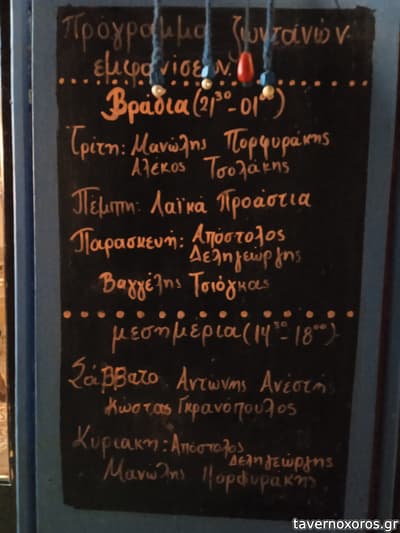 Πρόγραμμα ζωντανών
εμφανίσεων
Βράδια (21³⁰-01⁰⁰)
Τρίτη: Μανώλης Πορφυράκης
Αλέκος Τσολάκης
Πέμπτη: Λαϊκά Προάστια
Παρασκευή: Απόστολος
Δεληγεώργης
Βαγγέλης Τσιόγκας
μεσημέρια (14³⁰-18⁰⁰)
Σάββατο Αντώνης Ανέστης
Κώστας Γκρανόπουλος
Κυριακή: Απόστολος
Δεληγεώργης
Μανώλης Πορφυράκης
tavernoxoros.gr